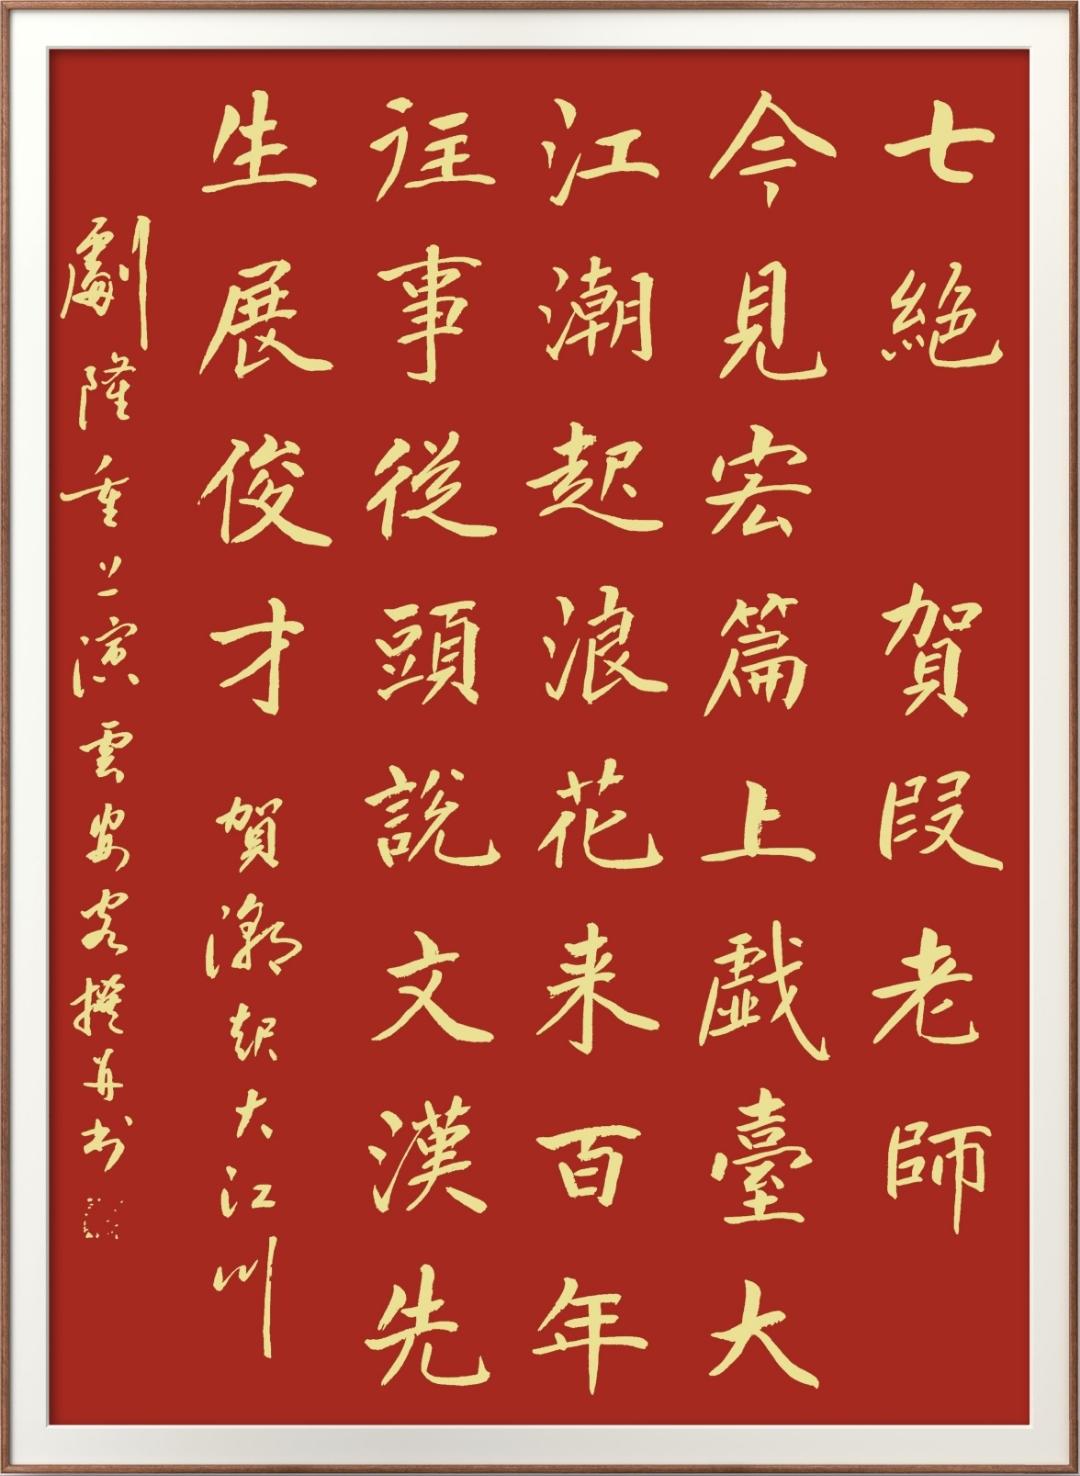 七絕 賀段老師
今見宏篇上戯臺大
江潮起浪花来百年
往事從頭說文漢先
生展俊才 賀潮起大江川
劇隆重上演雲安客撰并书